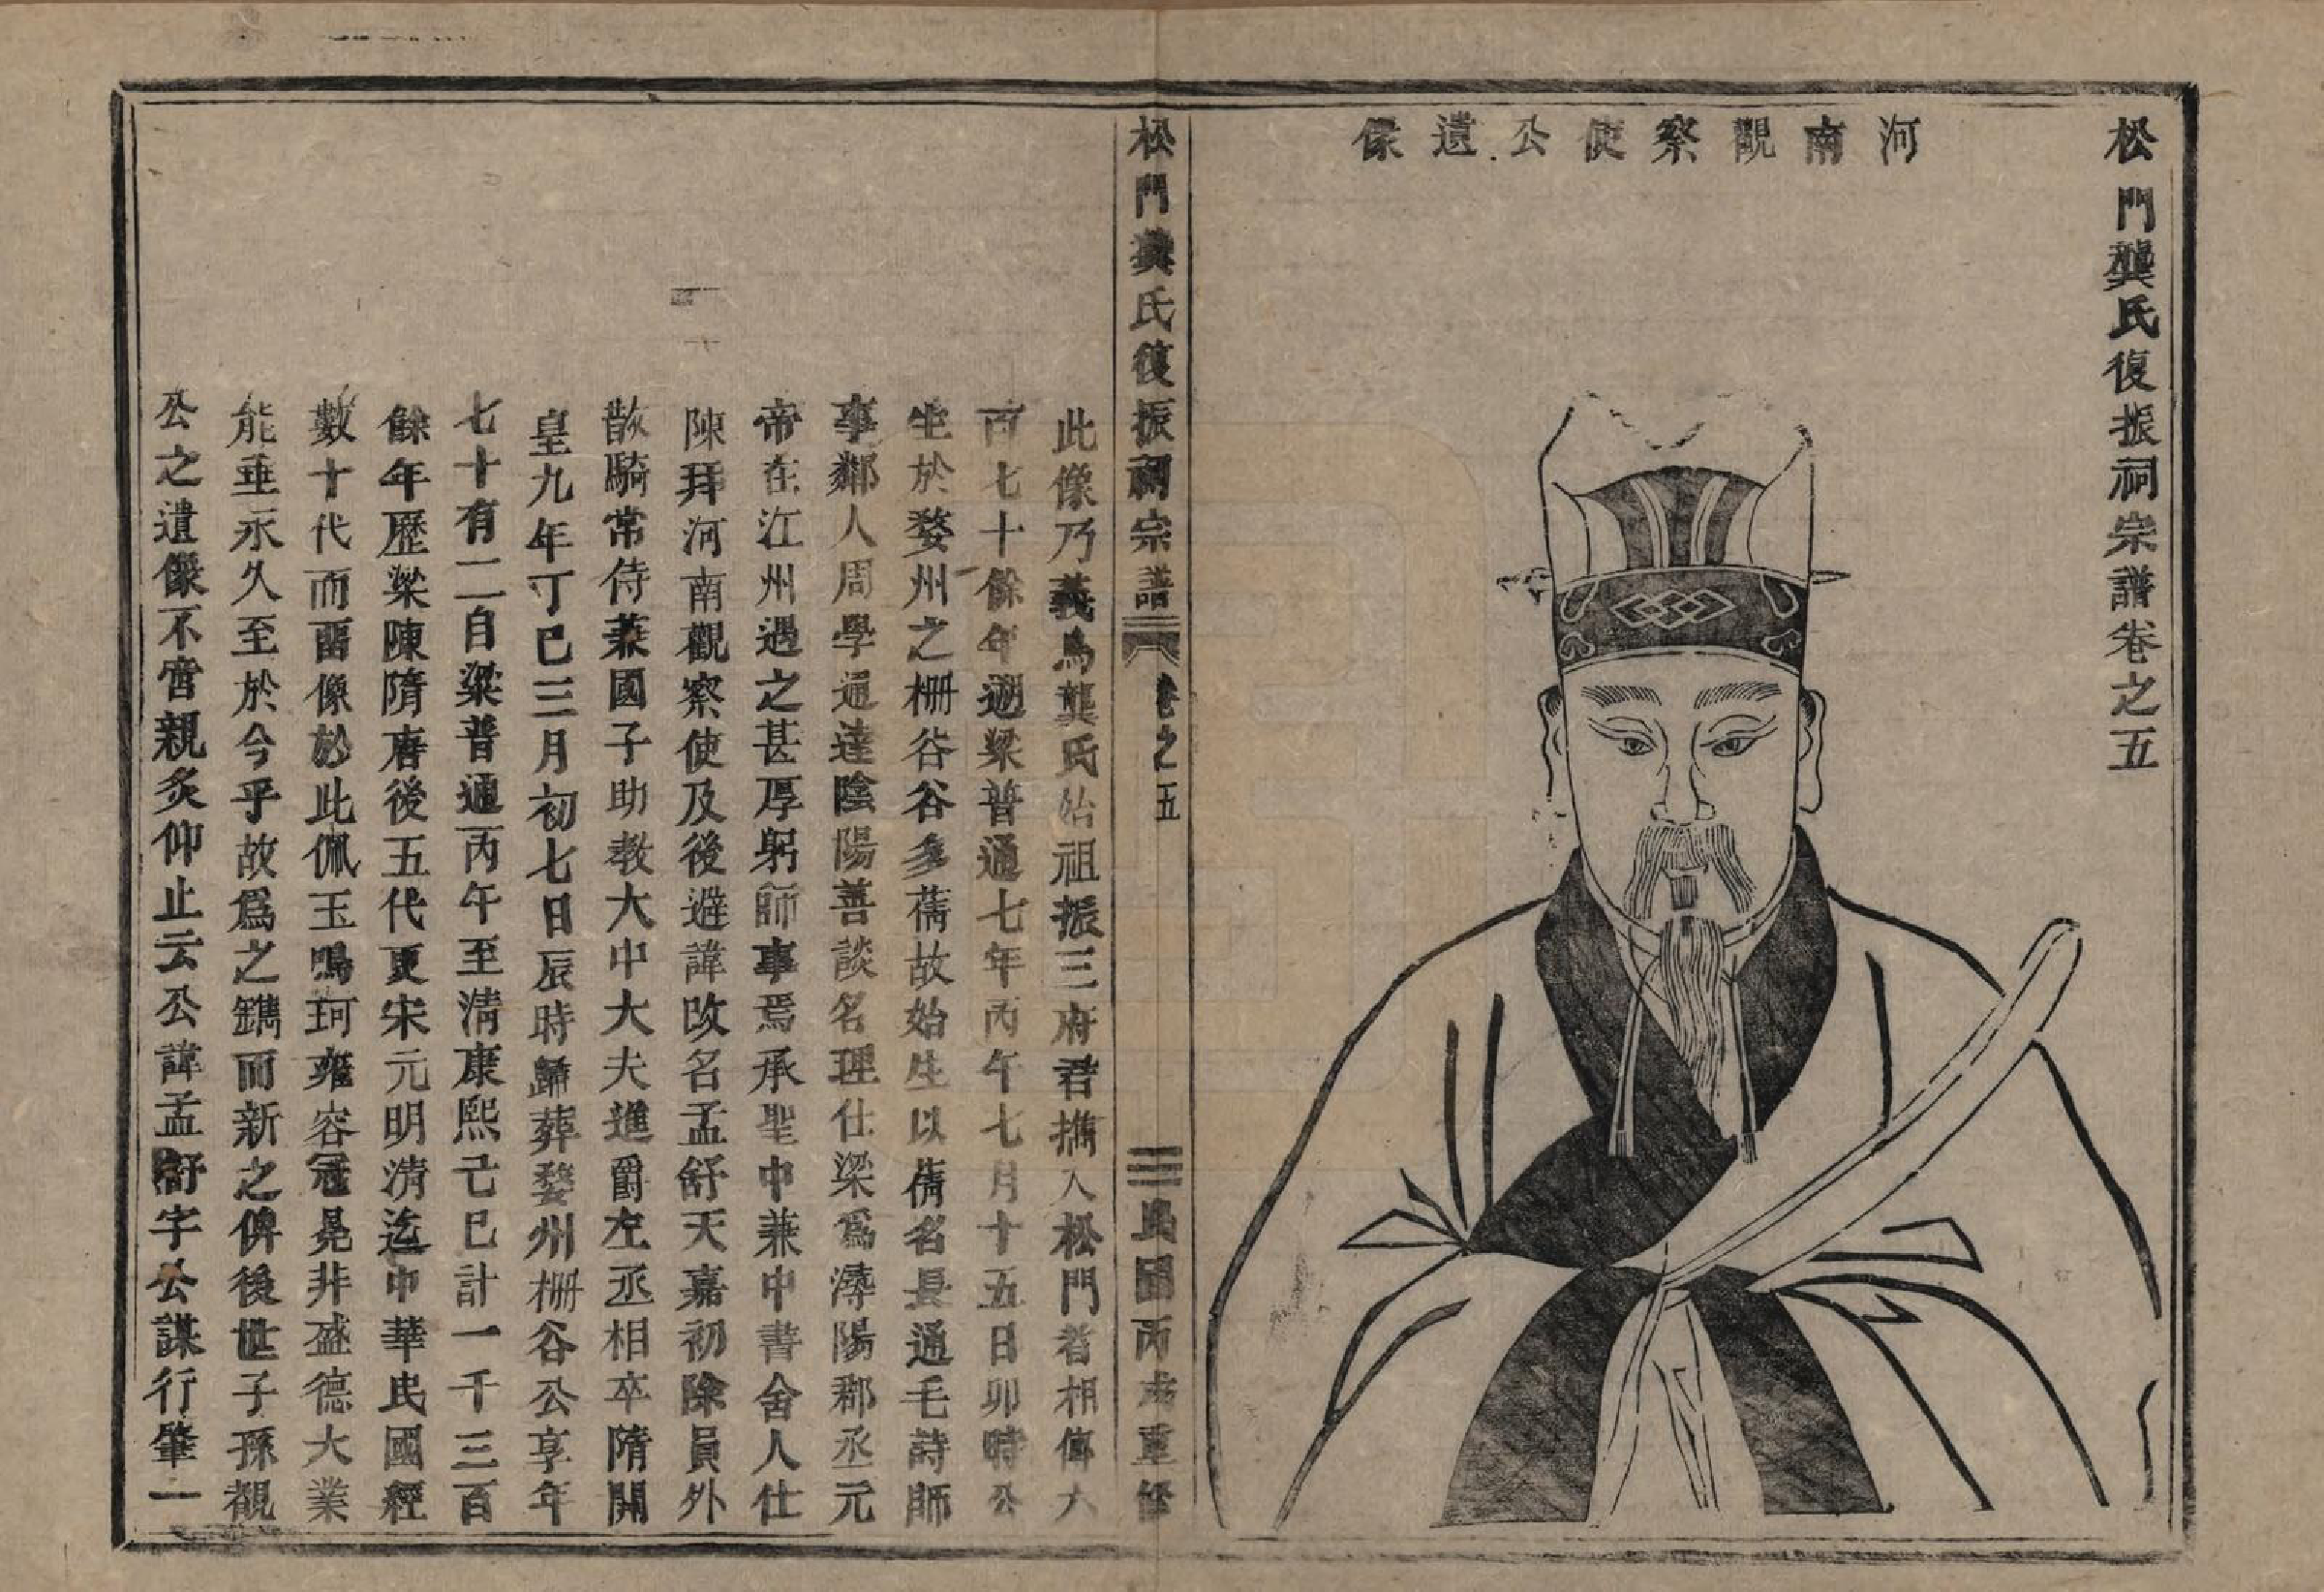 松門龔氏復振祠宗譜卷之五
河南觀察使公遺像
松門龔氏復振祠宗譜 卷之五 三 民國丙戌重修
此像乃義烏龔氏始祖振三府君攜入松門者相傳六
百七十餘年遡梁普通七年丙午七月十五日卯時公
生於婺州之柵谷谷多蒨故始生以蒨名長通毛詩師
事鄰人周學通達陰陽善談名理仕梁爲潯陽郡丞元
帝在江州遇之甚厚躬師事焉承聖中兼中書舍人仕
陳拜河南觀察使及後避諱改名孟舒天嘉初除員外
散騎常侍兼國子助教大中大夫進爵左丞相卒隋開
皇九年丁巳三月初七日辰時歸葬婺州柵谷公享年
七十有二自梁普通丙午至淸康熙己巳計一千三百
餘年歷梁陳隋唐後五代更宋元明淸迄中華民國經
數十代而畱像於此佩玉鳴珂雍容冠冕非盛德大業
能垂永久至於今乎故爲之鐫而新之俾後世子孫覩
公之遺像不啻親炙仰止云公諱孟舒字公謀行肇一